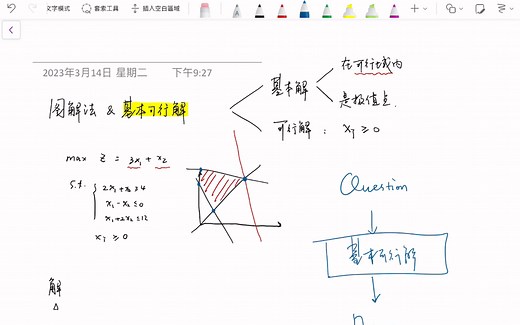 文字模式 套索工具 插入空白區域
2023年3月14日 星期二 下午9:27
图解法 & 基本可行解
基本解
在可行域内
是极值点
可行解： xⱼ ≥ 0
max z = 3x₁ + x₂
s.t.
2x₁ + x₂ ≥ 4
x₁ - x₂ ≤ 0
x₁ + 2x₂ ≤ 12
xⱼ ≥ 0
Question
基本可行解
n
解